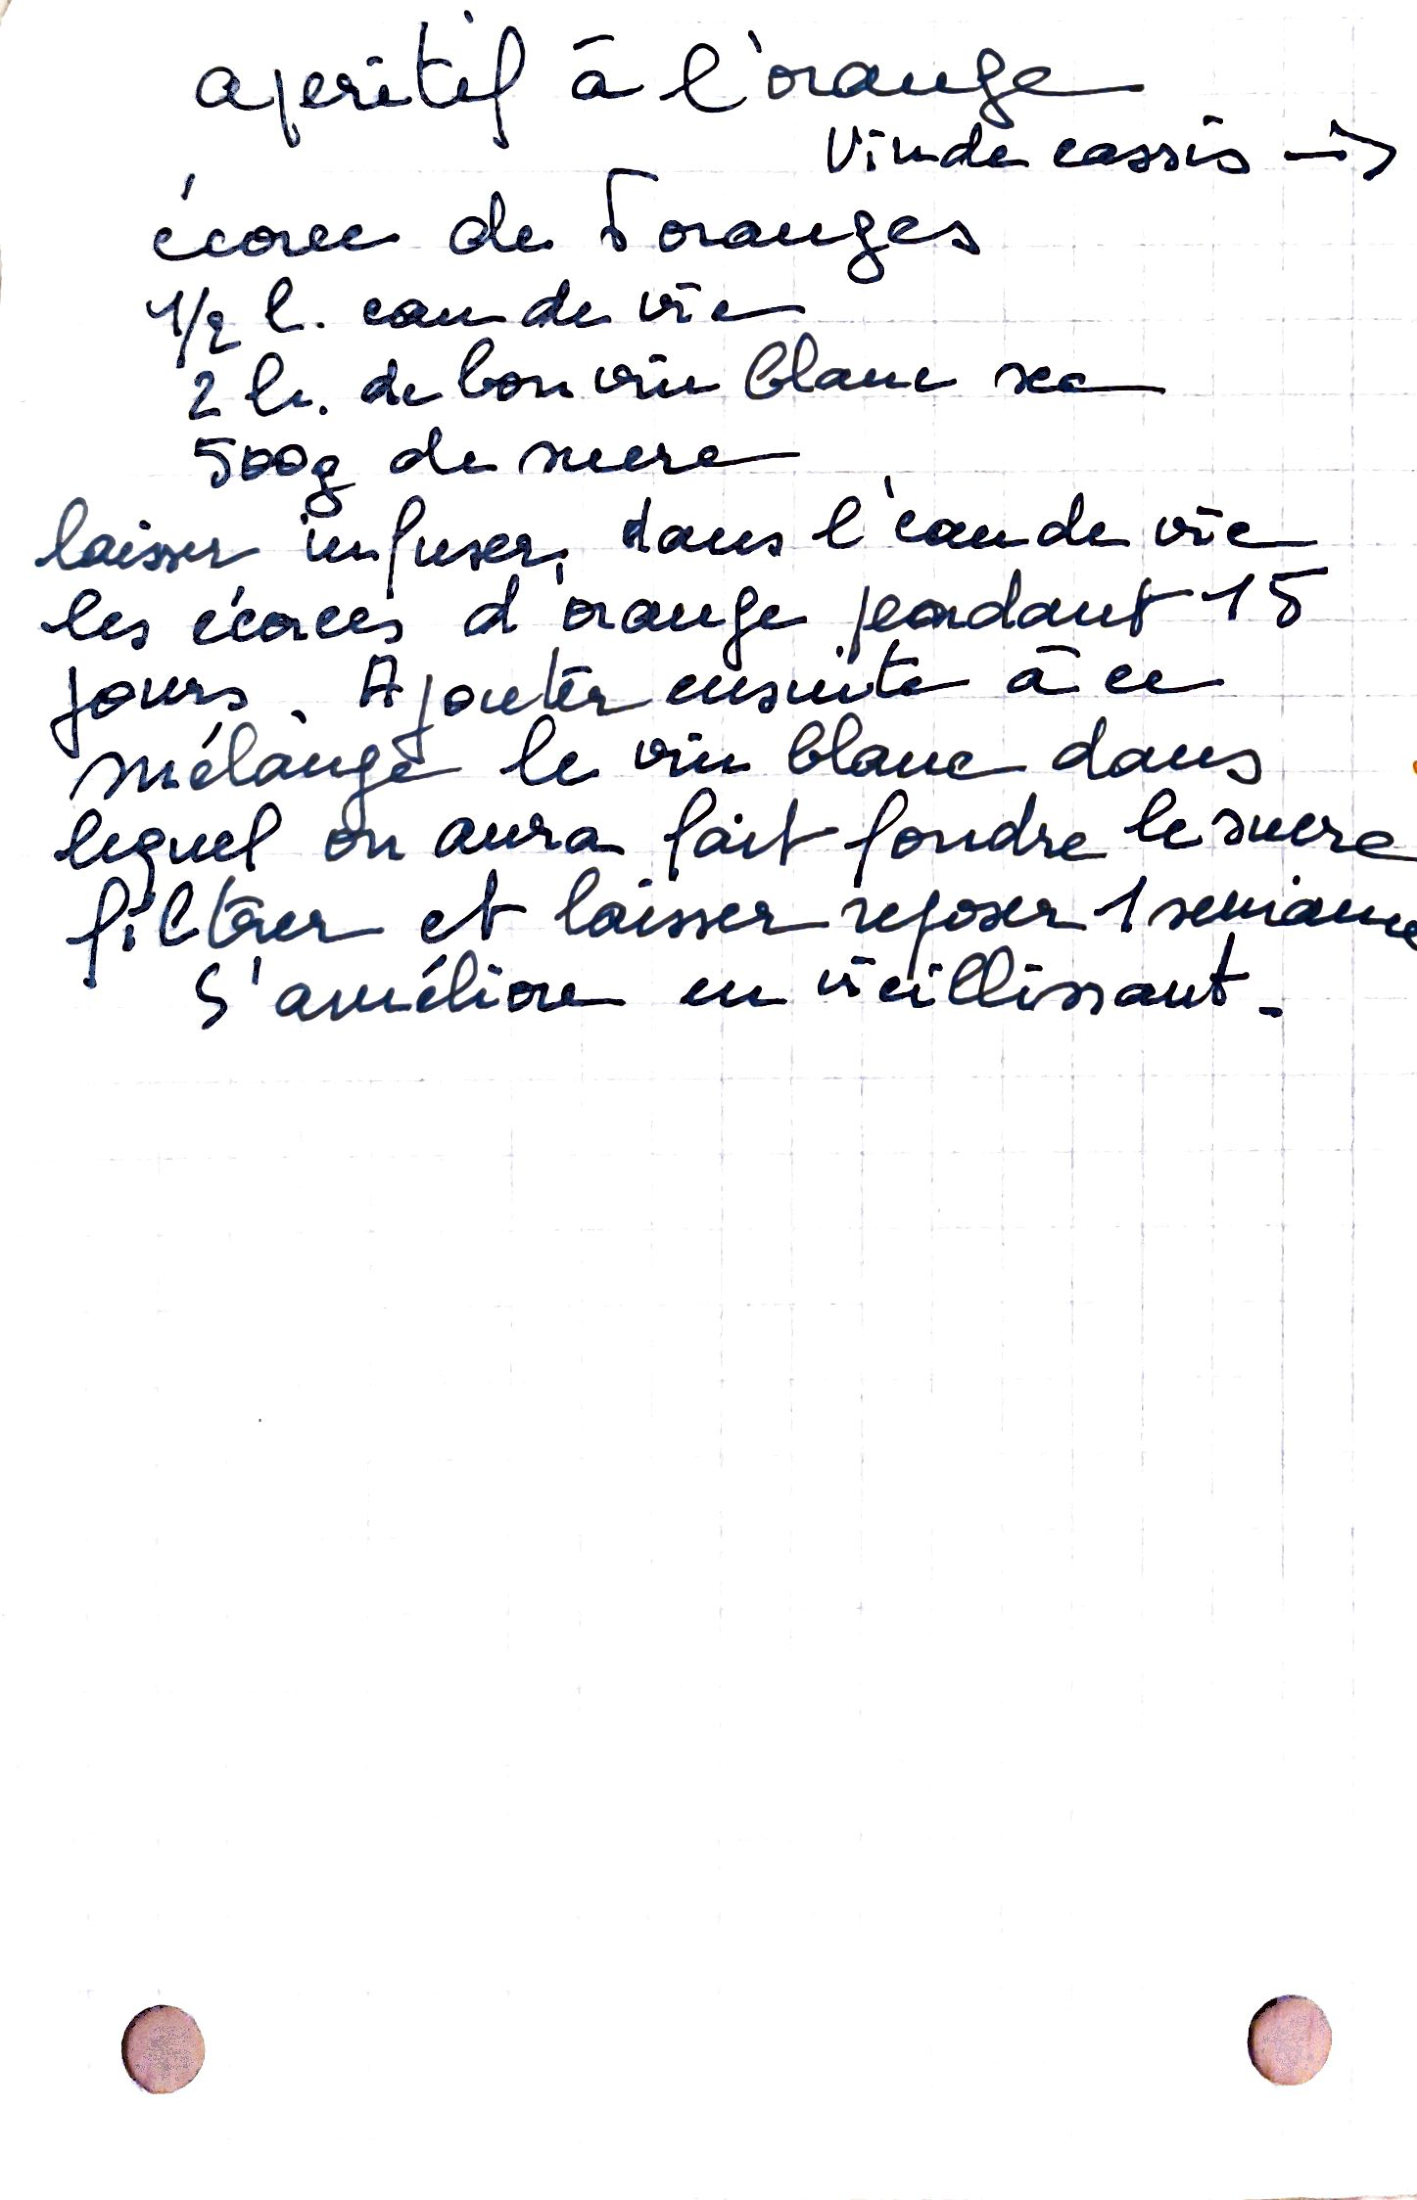 aperitif à l'orange
Vin de cassis →
écorce de 5 oranges
1/2 l. eau de vie
2 l. de bon vin blanc sec
500g de sucre
laisser infuser, dans l'eau de vie
les écorces d'orange pendant 15
jours. Ajouter ensuite à ce
mélange le vin blanc dans
lequel on aura fait fondre le sucre
filtrer et laisser reposer 1 semaine
S'améliore en vieillissant.